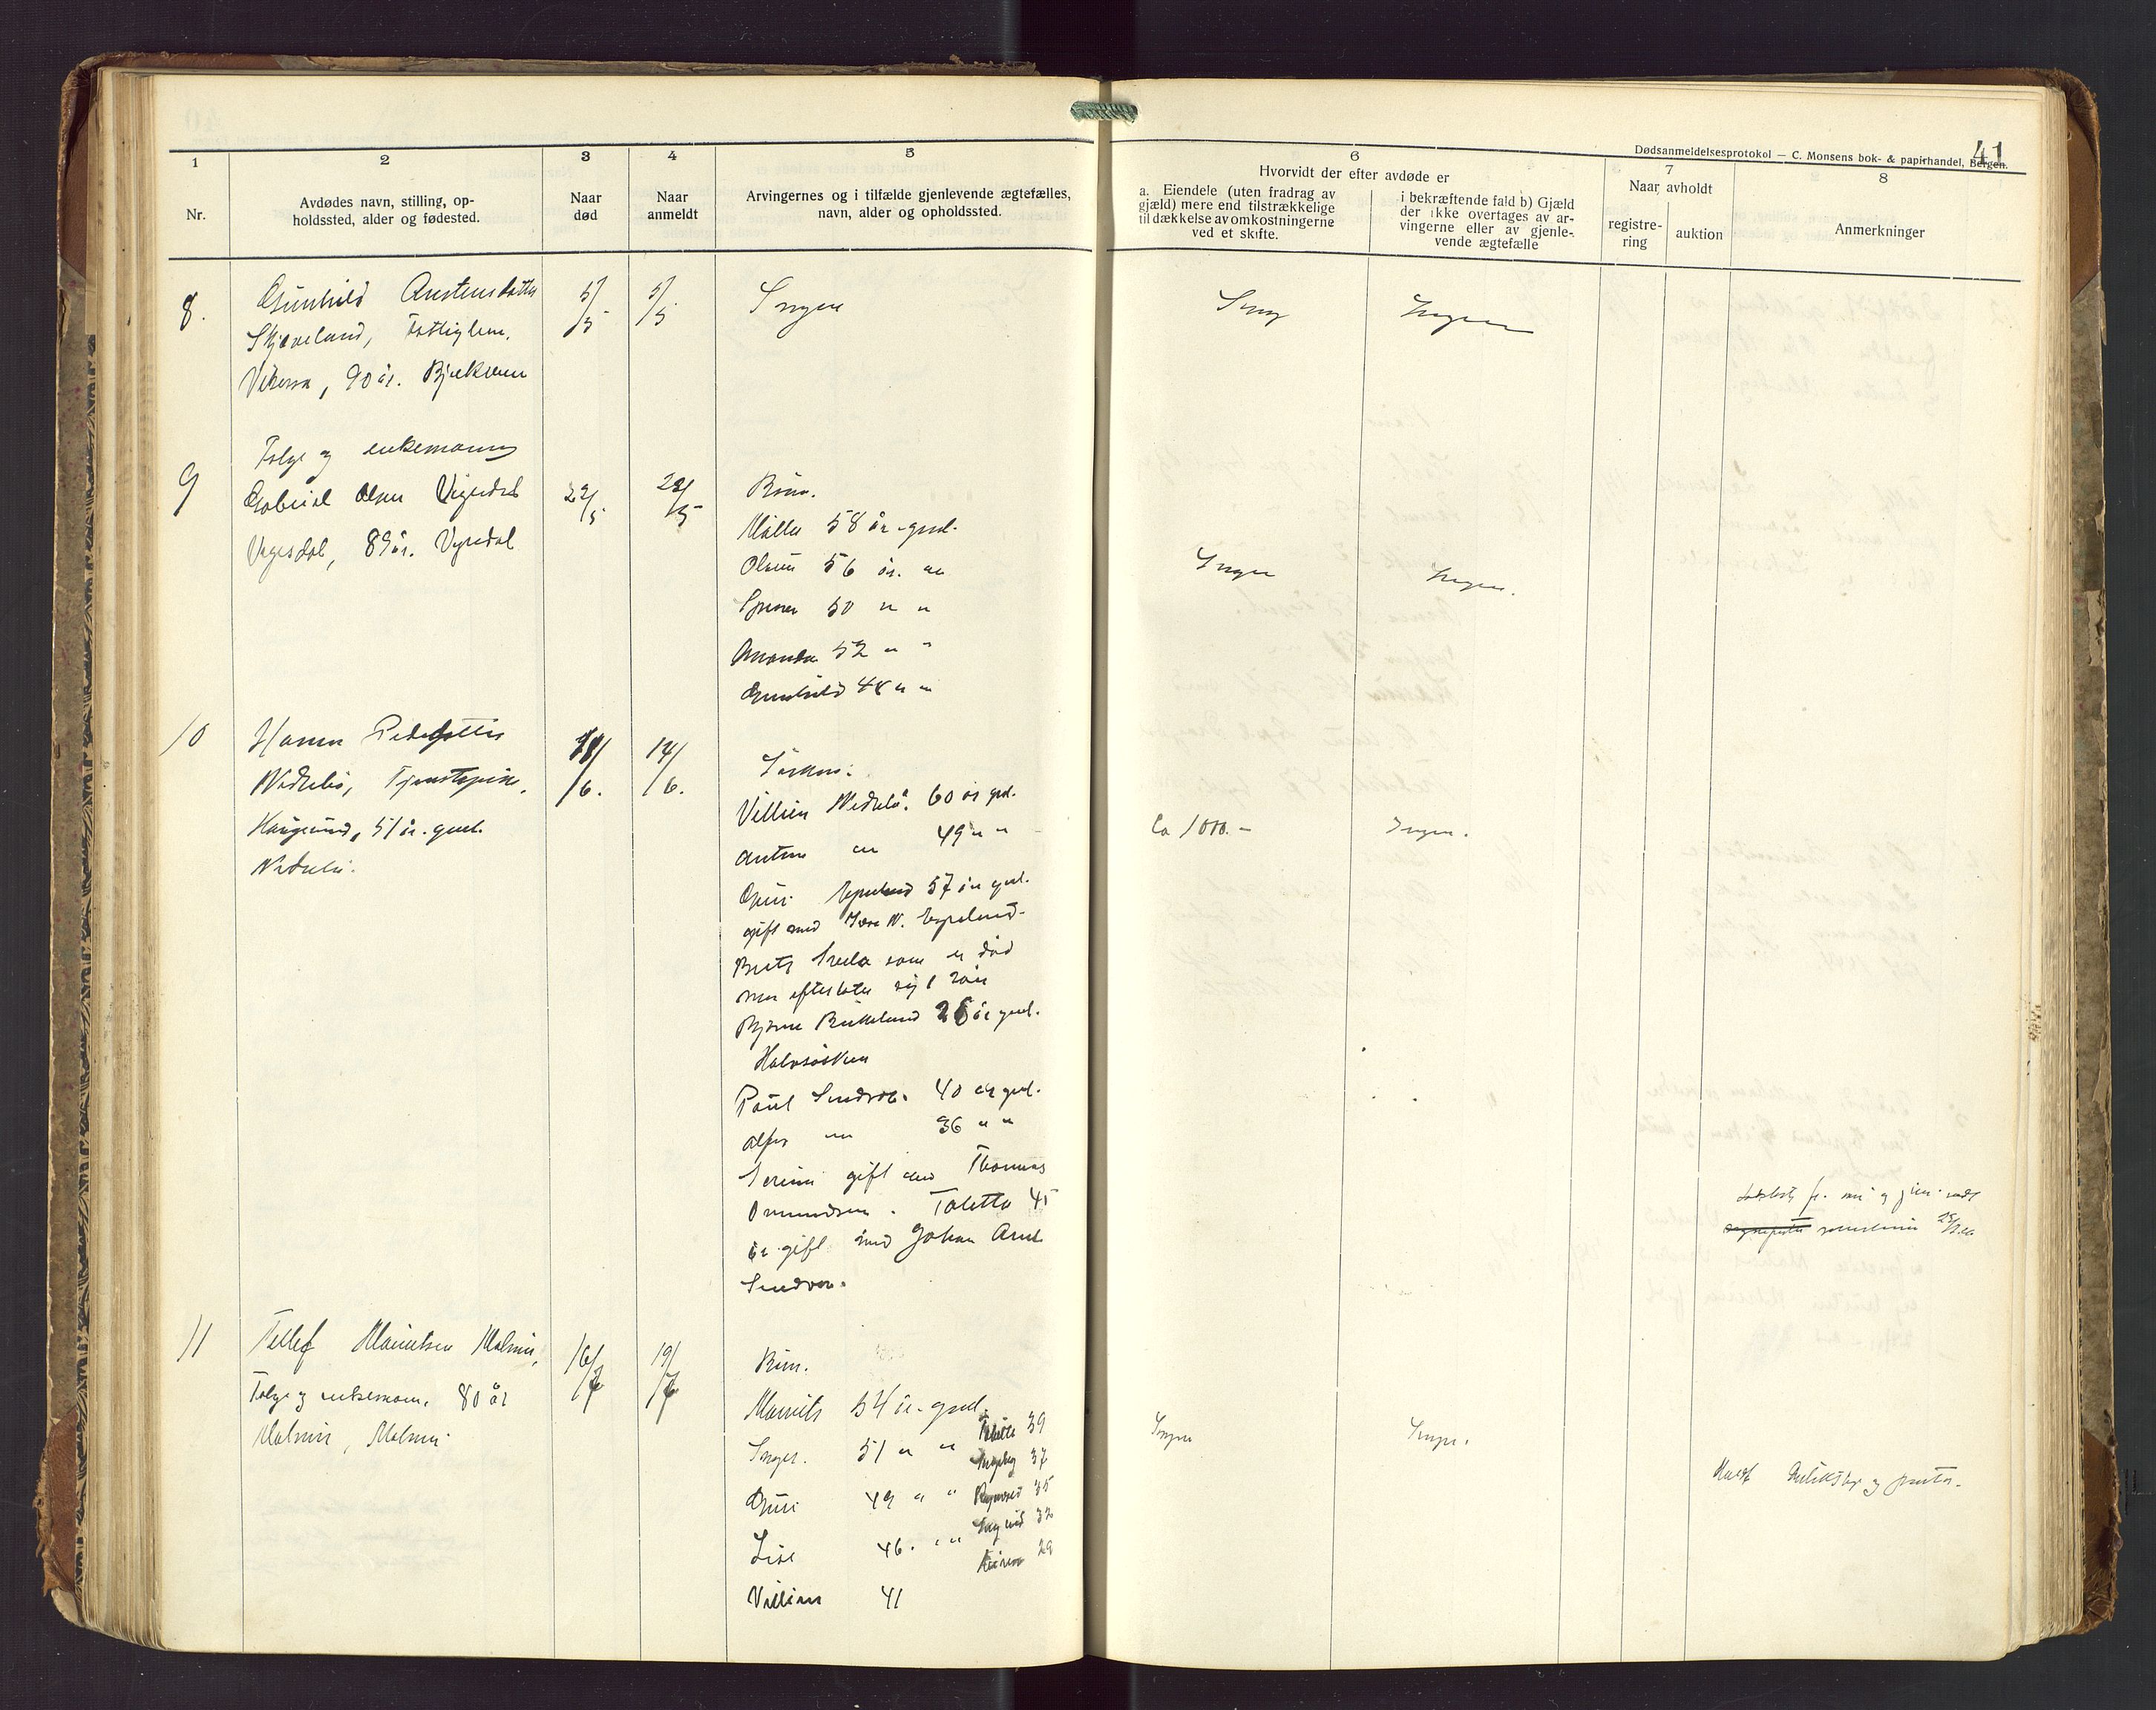 41
Dødsanmeldelsesprotokol — C. Monsens bok- & papirhandel, Bergen.
1
2
3
4
5
6
7
8
Nr.
Avdødes navn, stilling, op-
holdssted, alder og fødested.
Naar
død
Naar
anmeldt
Arvingernes og i tilfælde gjenlevende ægtefælles,
navn, alder og opholdssted.
Hvorvidt der efter avdøde er
a. Eiendele (uten fradrag av
gjæld) mere end tilstrækkelige
til dækkelse av omkostningerne
ved et skifte.
i bekræftende fald b) Gjæld
der ikke overtages av ar-
vingerne eller av gjenle-
vende ægtefælle
Naar avholdt
registre-
ring
auktion
Anmerkninger
8.
Gunhild Austensdatter
Skjæveland, Fattiglem.
90 år. Bjerkreim
5/5
5/5
Ingen
Ingen
Ingen
9
Følge og enkemann
Gabriel Olsen Vigesdal
Vigesdal, 89 år. Vigesdal
22/5
22/5
Børn.
Malla 58 år. gml.
Olaus 56 år. "
50 " "
Amanda 52 " "
Gunhild 48 " "
Ingen
Ingen.
10
Hanna Pedersdatter
Nedrebø, Tjenestepike,
Haugesund, 51 år. gml.
Nedrebø.
11/6.
14/6.
Søsken:
Villien Nedrebø. 60 år gml.
Antone " 49 " "
Guri Espeland 57 år gml.
gift med N. Espeland.
som er død
men efterlater sig 1 søn
Bjarne Birkeland 28 år gml.
Halvsøsken
Paul Sundvor. 40 år gml.
" 36 " "
Serine gift med Thomas
Ommundsen. Toletta 45
år gift med Johan Arnt
Sundvor.
Ca 1000.-
Ingen.
11
Tellef Mauritsen Malmin,
Følge og enkemann. 80 år
Malmin, Malmin.
16/7
19/7
Børn.
Maurits 54 år. gml.
Inger. 51 " "
Guri 49 " "
Lise 46. " "
Villien 41
Tolette 39
Ingeborg 37
Ragnvald 35
Sigvald 32
29
Ingen
Ingen.